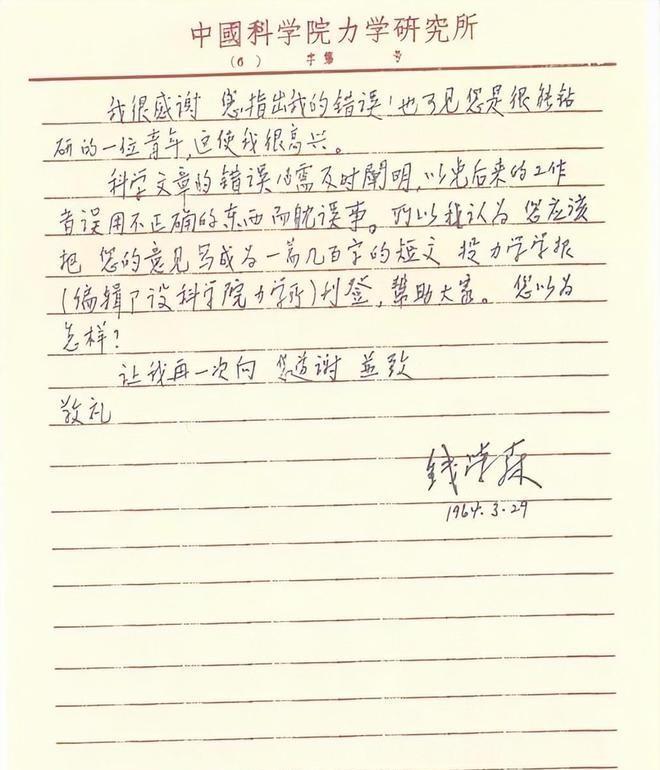 中國科学院力学研究所
( 6 ) 字第 号
我很感谢 您指出我的错误！也可见您是很能钻
研的一位青年，这使我很高兴。
科学文章的错误必需及时闡明，以免后来的工作
者误用不正确的东西而耽误事。所以我认为 您应该
把 您的意见写成为一篇几百字的短文 投力学学报
(编辑下设科学院力学所)刊登，帮助大家。 您以为
怎样？
让我再一次向 您道谢 並致
敬礼
钱学森
1964.3.29